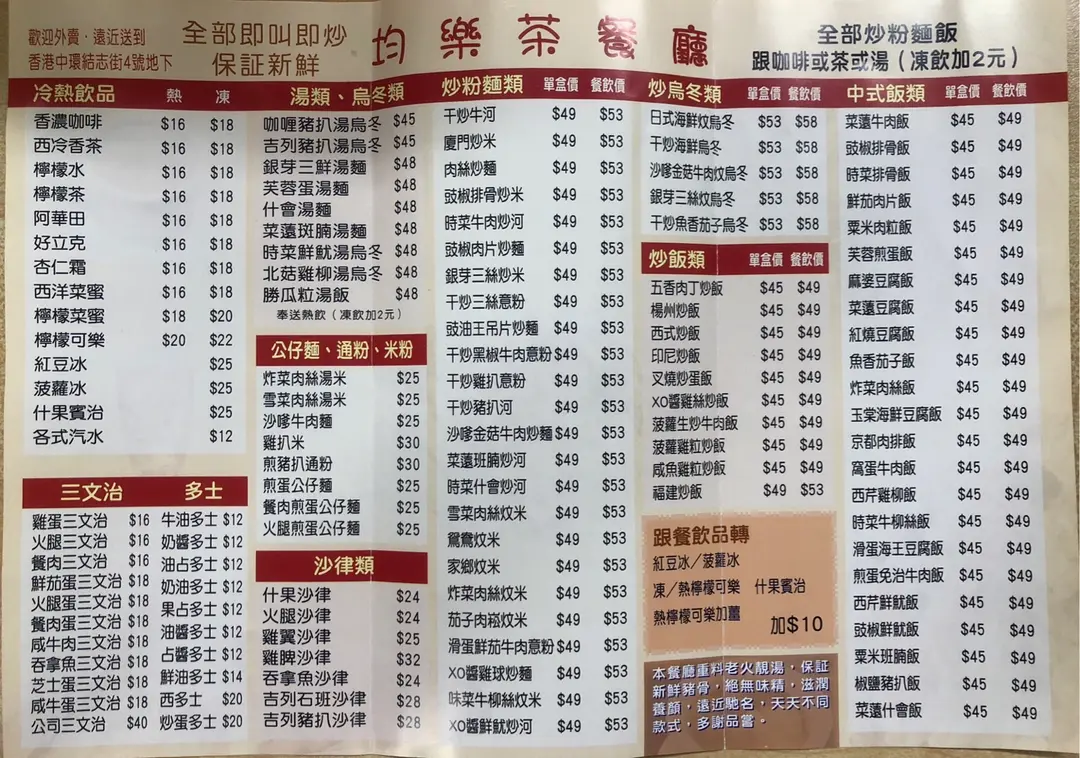 歡迎外賣·遠近送到
香港中環結志街4號地下
全部即叫即炒
保証新鮮
均樂茶餐廳
全部炒粉麵飯
跟咖啡或茶或湯(凍飲加2元)
冷熱飲品 熱 凍
香濃咖啡 $16 $18
西冷香茶 $16 $18
檸檬水 $16 $18
檸檬茶 $16 $18
阿華田 $16 $18
好立克 $16 $18
杏仁霜 $16 $18
西洋菜蜜 $16 $18
檸檬菜蜜 $18 $20
檸檬可樂 $20 $22
紅豆冰 $25
菠蘿冰 $25
什果賓治 $25
各式汽水 $12
三文治 多士
雞蛋三文治 $16 牛油多士 $12
火腿三文治 $16 奶醬多士 $12
餐肉三文治 $16 油占多士 $12
鮮茄蛋三文治 $18 奶油多士 $12
火腿蛋三文治 $18 果占多士 $12
餐肉蛋三文治 $18 油醬多士 $12
咸牛肉三文治 $18 占醬多士 $12
吞拿魚三文治 $18 鮮油多士 $14
芝士蛋三文治 $18 西多士 $20
咸牛蛋三文治 $18
公司三文治 $40 炒蛋多士 $20
湯類、烏冬類
咖喱豬扒湯烏冬 $45
吉列豬扒湯烏冬 $45
銀芽三鮮湯麵 $48
芙蓉蛋湯麵 $48
什會湯麵 $48
菜薳斑腩湯麵 $48
時菜鮮魷湯烏冬 $48
北菇雞柳湯烏冬 $48
勝瓜粒湯飯 $48
奉送熱飲(凍飲加2元)
公仔麵、通粉、米粉
炸菜肉絲湯米 $25
雪菜肉絲湯米 $25
沙嗲牛肉麵 $25
雞扒米 $30
煎豬扒通粉 $30
煎蛋公仔麵 $25
餐肉煎蛋公仔麵 $25
火腿煎蛋公仔麵 $25
沙律類
什果沙律 $24
火腿沙律 $24
雞翼沙律 $25
雞髀沙律 $32
吞拿魚沙律 $24
吉列石班沙律 $28
吉列豬扒沙律 $28
炒粉麵類 單盒價 餐飲價
干炒牛河 $49 $53
廈門炒米 $49 $53
肉絲炒麵 $49 $53
豉椒排骨炒米 $49 $53
時菜牛肉炒河 $49 $53
豉椒肉片炒麵 $49 $53
銀芽三絲炒米 $49 $53
干炒三絲意粉 $49 $53
豉油王吊片炒麵 $49 $53
干炒黑椒牛肉意粉 $49 $53
干炒雞扒意粉 $49 $53
干炒豬扒河 $49 $53
沙嗲金菇牛肉炒麵 $49 $53
菜薳班腩炒河 $49 $53
時菜什會炒河 $49 $53
雪菜肉絲炆米 $49 $53
鴛鴦炆米 $49 $53
家鄉炆米 $49 $53
炸菜肉絲炆米 $49 $53
茄子肉崧炆米 $49 $53
滑蛋鮮茄牛肉意粉 $49 $53
XO醬雞球炒麵 $49 $53
味菜牛柳絲炆米 $49 $53
XO醬鮮魷炒河 $49 $53
炒烏冬類 單盒價 餐飲價
日式海鮮炆烏冬 $53 $58
干炒海鮮烏冬 $53 $58
沙嗲金菇牛肉炆烏冬 $53 $58
銀芽三絲炆烏冬 $53 $58
干炒魚香茄子烏冬 $53 $58
炒飯類 單盒價 餐飲價
五香肉丁炒飯 $45 $49
楊州炒飯 $45 $49
西式炒飯 $45 $49
印尼炒飯 $45 $49
叉燒炒蛋飯 $45 $49
XO醬雞絲炒飯 $45 $49
菠蘿生炒牛肉飯 $45 $49
菠蘿雞粒炒飯 $45 $49
咸魚雞粒炒飯 $45 $49
福建炒飯 $49 $53
跟餐飲品轉
紅豆冰/菠蘿冰
凍/熱檸檬可樂 什果賓治
熱檸檬可樂加薑
加$10
本餐廳重料老火靚湯,保証
新鮮豬骨,絕無味精,滋潤
養顏,遠近馳名,天天不同
款式,多謝品嘗。
中式飯類 單盒價 餐飲價
菜薳牛肉飯 $45 $49
豉椒排骨飯 $45 $49
時菜排骨飯 $45 $49
鮮茄肉片飯 $45 $49
粟米肉粒飯 $45 $49
芙蓉煎蛋飯 $45 $49
麻婆豆腐飯 $45 $49
菜薳豆腐飯 $45 $49
紅燒豆腐飯 $45 $49
魚香茄子飯 $45 $49
炸菜肉絲飯 $45 $49
玉棠海鮮豆腐飯 $45 $49
京都肉排飯 $45 $49
窩蛋牛肉飯 $45 $49
西芹雞柳飯 $45 $49
時菜牛柳絲飯 $45 $49
滑蛋海王豆腐飯 $45 $49
煎蛋免治牛肉飯 $45 $49
西芹鮮魷飯 $45 $49
豉椒鮮魷飯 $45 $49
粟米班腩飯 $45 $49
椒鹽豬扒飯 $45 $49
菜薳什會飯 $45 $49